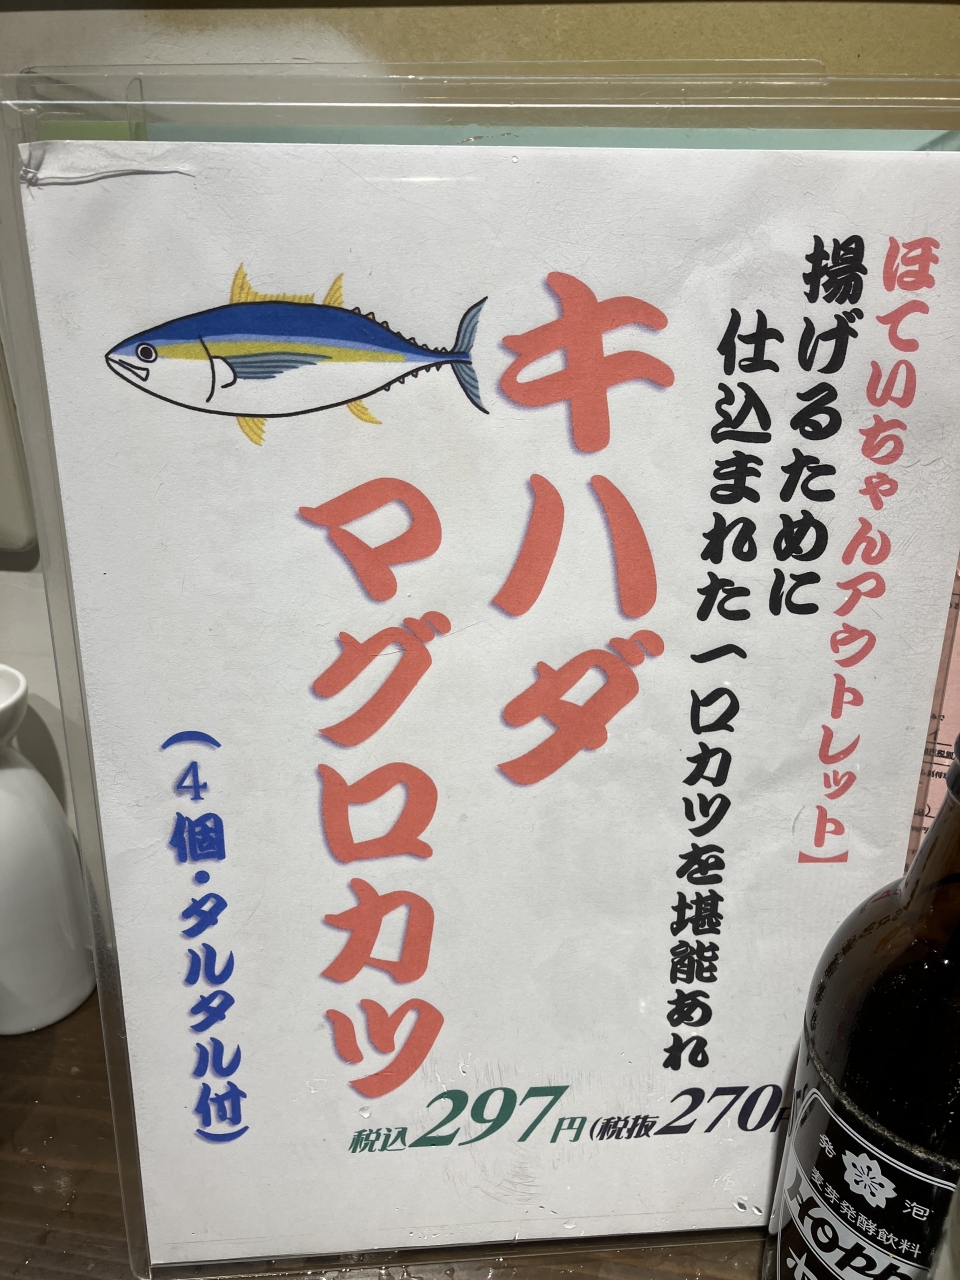 ほていちゃんアウトレット】
揚げるために
仕込まれた一口カツを堪能あれ
キハダ
マグロカツ
(4個・タルタル付)
税込297円(税抜270円
発 泡
麦芽発酵飲料